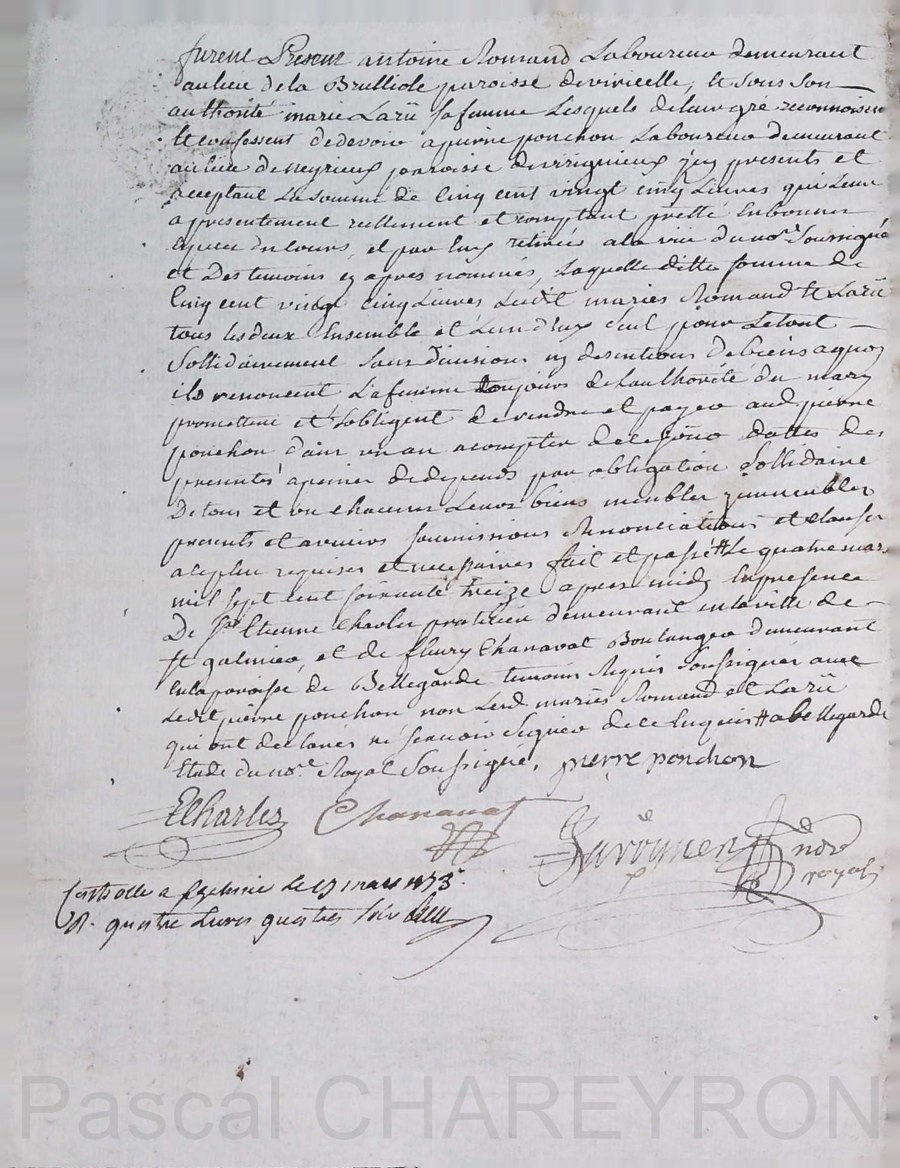 furent Present antoine Romand Laboureur demeurant
au lieu de la Brulliole paroisse de viricelle, et sous son
authorité marie Larü sa femme Lesquels de leur gré reconnoissent
et confessent de devoir a pierre ponchon Laboureur demeurant
au lieu de neyrieux paroisse de present et
acceptant La somme de Cinq cent vingt cinq Livres qui Leur
a presentement reellement et comptant pretté en bonnes
Espece du cours, et par Eux retirée a la vüe du nore. Soussigné
et des temoins cy apres nommés, Laquelle ditte somme de
Cinq cent vingt cinq Livres Lesdt. mariés Romand et Larü
tous les deux Ensemble et L'un d'eux seul pour Le tout
Sollidairement sans division ny de biens a quoy
ils renoncent La femme toujours de L'authorité du mary
promettent et s'obligent de rendre et payer aud. pierre
ponchon d'un an a compter de ce jour datte des
presentes a peine de depends par obligation Sollidaire
de tous et un chacuns Leurs biens meubles immeubles
presents et avenirs soumissions Renonciations et clauses
requises et necessaires fait et passé # Le quatre mars
mil sept cent soixante treize apres midy En presence
De Sr. Etienne Charles praticien demeurant en la ville de
st galmier, et de fleury Chanavat Boulanger demeurant
En la paroisse de Bellegarde temoins Requis Soussignés avec
Ledit pierre ponchon non Lesd. mariés Romand et Larü
qui ont declarés ne scavoir signer de ce Enquis # a bellegarde
Etude du nore. Royal Soussigné. pierre ponchon
ECharles Chanavat
nore
royal
Controlle a st galmier Le 17 mars 1773
R. quatre Livres quatres sols
Pascal CHAREYRON